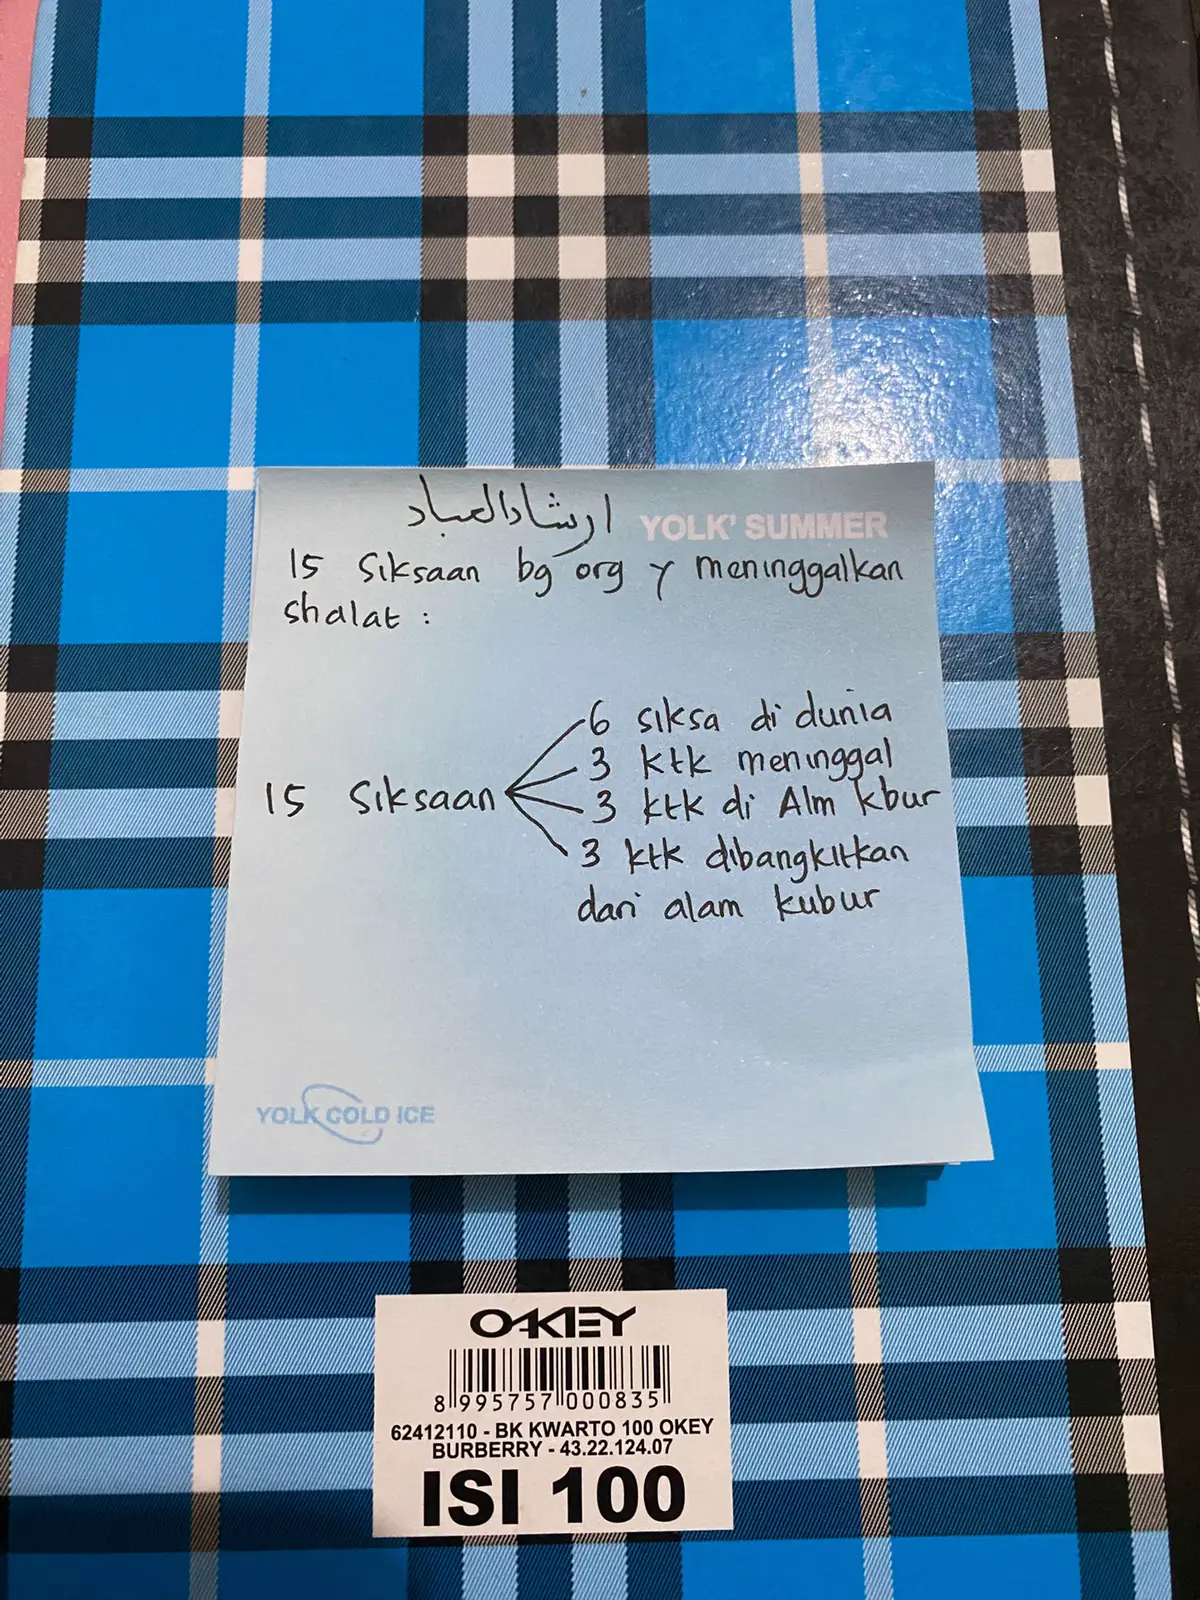 ارشاد العباد
YOLK' SUMMER
15 siksaan bg org y meninggalkan
shalat :
15 Siksaan
6 siksa di dunia
3 ktk meninggal
3 ktk di Alm kbur
3 ktk dibangkitkan
dari alam kubur
YOLK COLD ICE
OAKLEY
8 995757 000835
62412110 - BK KWARTO 100 OKEY
BURBERRY - 43.22.124.07
ISI 100